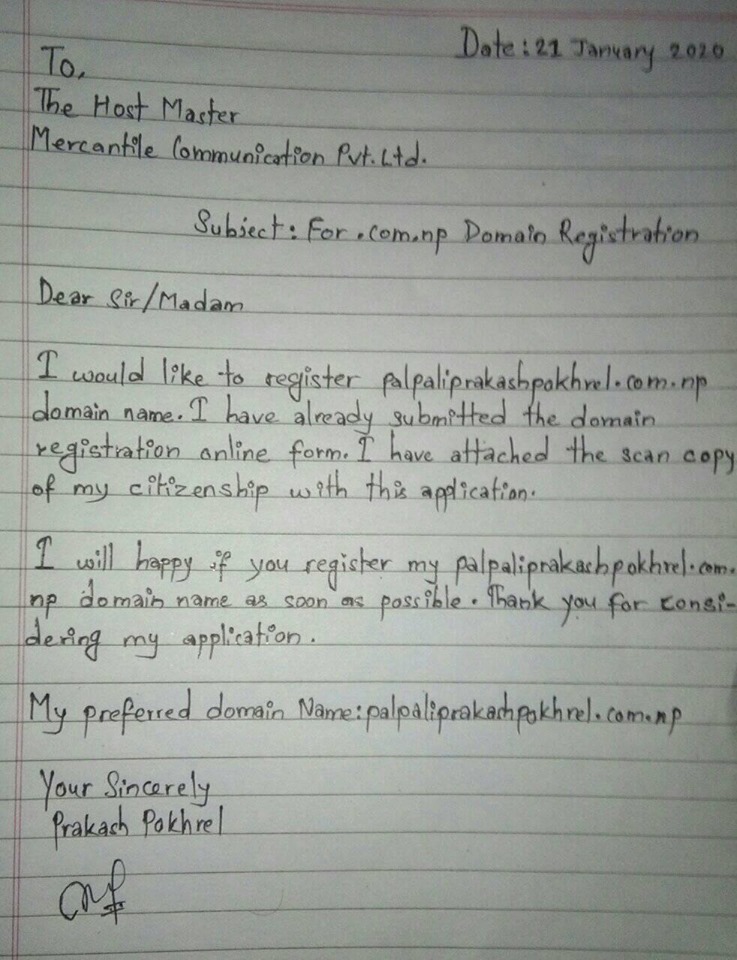 Date: 21 January 2020
To,
The Host Master
Mercantile Communication Pvt. Ltd.
Subject: For .com.np Domain Registration
Dear Sir/Madam
I would like to register palpaliprakashpokhrel.com.np
domain name. I have already submitted the domain
registration online form. I have attached the scan copy
of my citizenship with this application.
I will happy if you register my palpaliprakashpokhrel.com.
np domain name as soon as possible. Thank you for consi-
dering my application.
My preferred domain Name: palpaliprakashpokhrel.com.np
Your Sincerely
Prakash Pokhrel